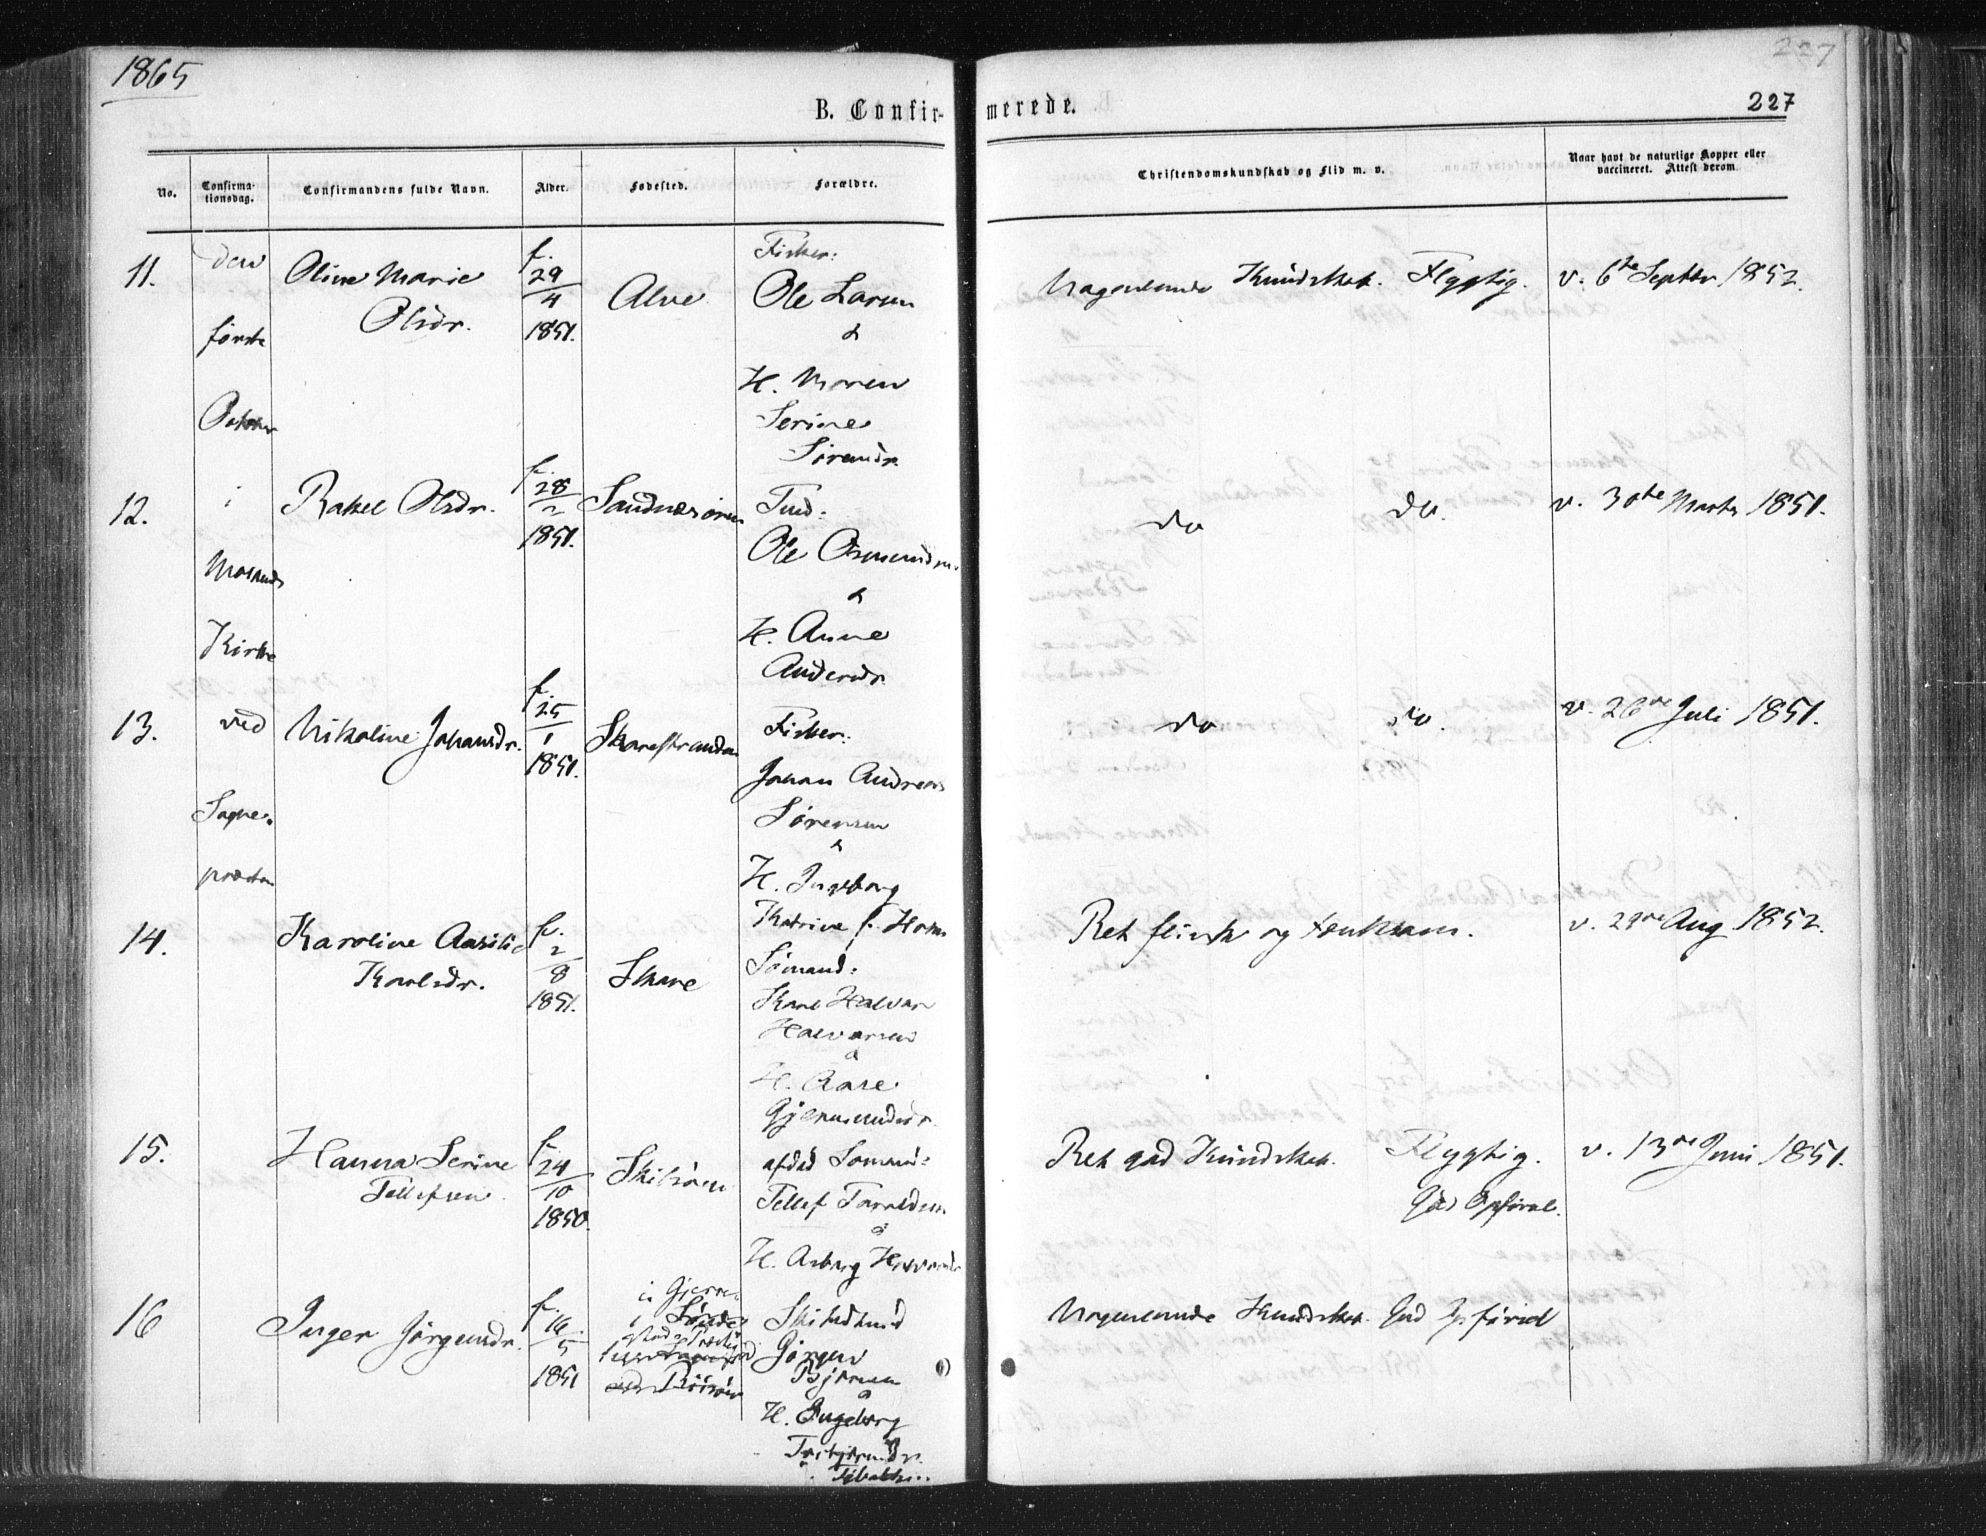 1865
227
B. Confir-
merede.
227
No.
Confirma-
tionsdag.
Confirmandens fulde Navn.
Alder.
Fødested.
Forældre.
Christendomskundskab og Flid m. v.
Naar havt de naturlige Kopper eller
vaccineret. Attest derom
den
første
October
i
Kirke
ved
Sogne-
præsten
11.
Oline Marie
Olsdr.
f.
29
4
1851.
Alve
Fisker:
Ole Larsen
&
H. Maren
Serine
Sørensdr.
Nogenlunde Kundskab. Flygtig.
v. 6te Septbr 1852.
12.
Rakel Olsdr.
f.
28
2
1851.
Sandnæsøren
Ole Osmundsen
&
H. Anne
Andersdr.
do do.
v. 30te Marts 1851.
13.
Nikoline Johansdr.
f.
25
1
1851.
Skarestranden
Fisker:
Johan Andreas
Sørensen
&
H. Ingeborg
Katrine f. Horn
do do.
v. 26de Juli 1851.
14.
Karoline Aasilie
Karlsdr.
f.
2
8
1851.
Skare
Sømand:
Karl Halvor
Halvorsen
&
H. Aase
Gjermundsdr.
Ret flink og tænksom.
v. 29de Aug 1852.
15.
Hanna Serine
Tellefsen
f.
24
10
1850.
Skilsøen
afdød Sømand:
Tellef Taraldsen
&
H. Asborg
Ret god Kundskab. Flygtig.
God Opførsel.
v. 13de Juni 1851.
16
Inger Jörgensdr.
f.
16
5
1851
i Gjerre-
Jörgen
Bjørnsen
&
H. Ingeborg
Nogenlunde Kundskab. God Opførsel